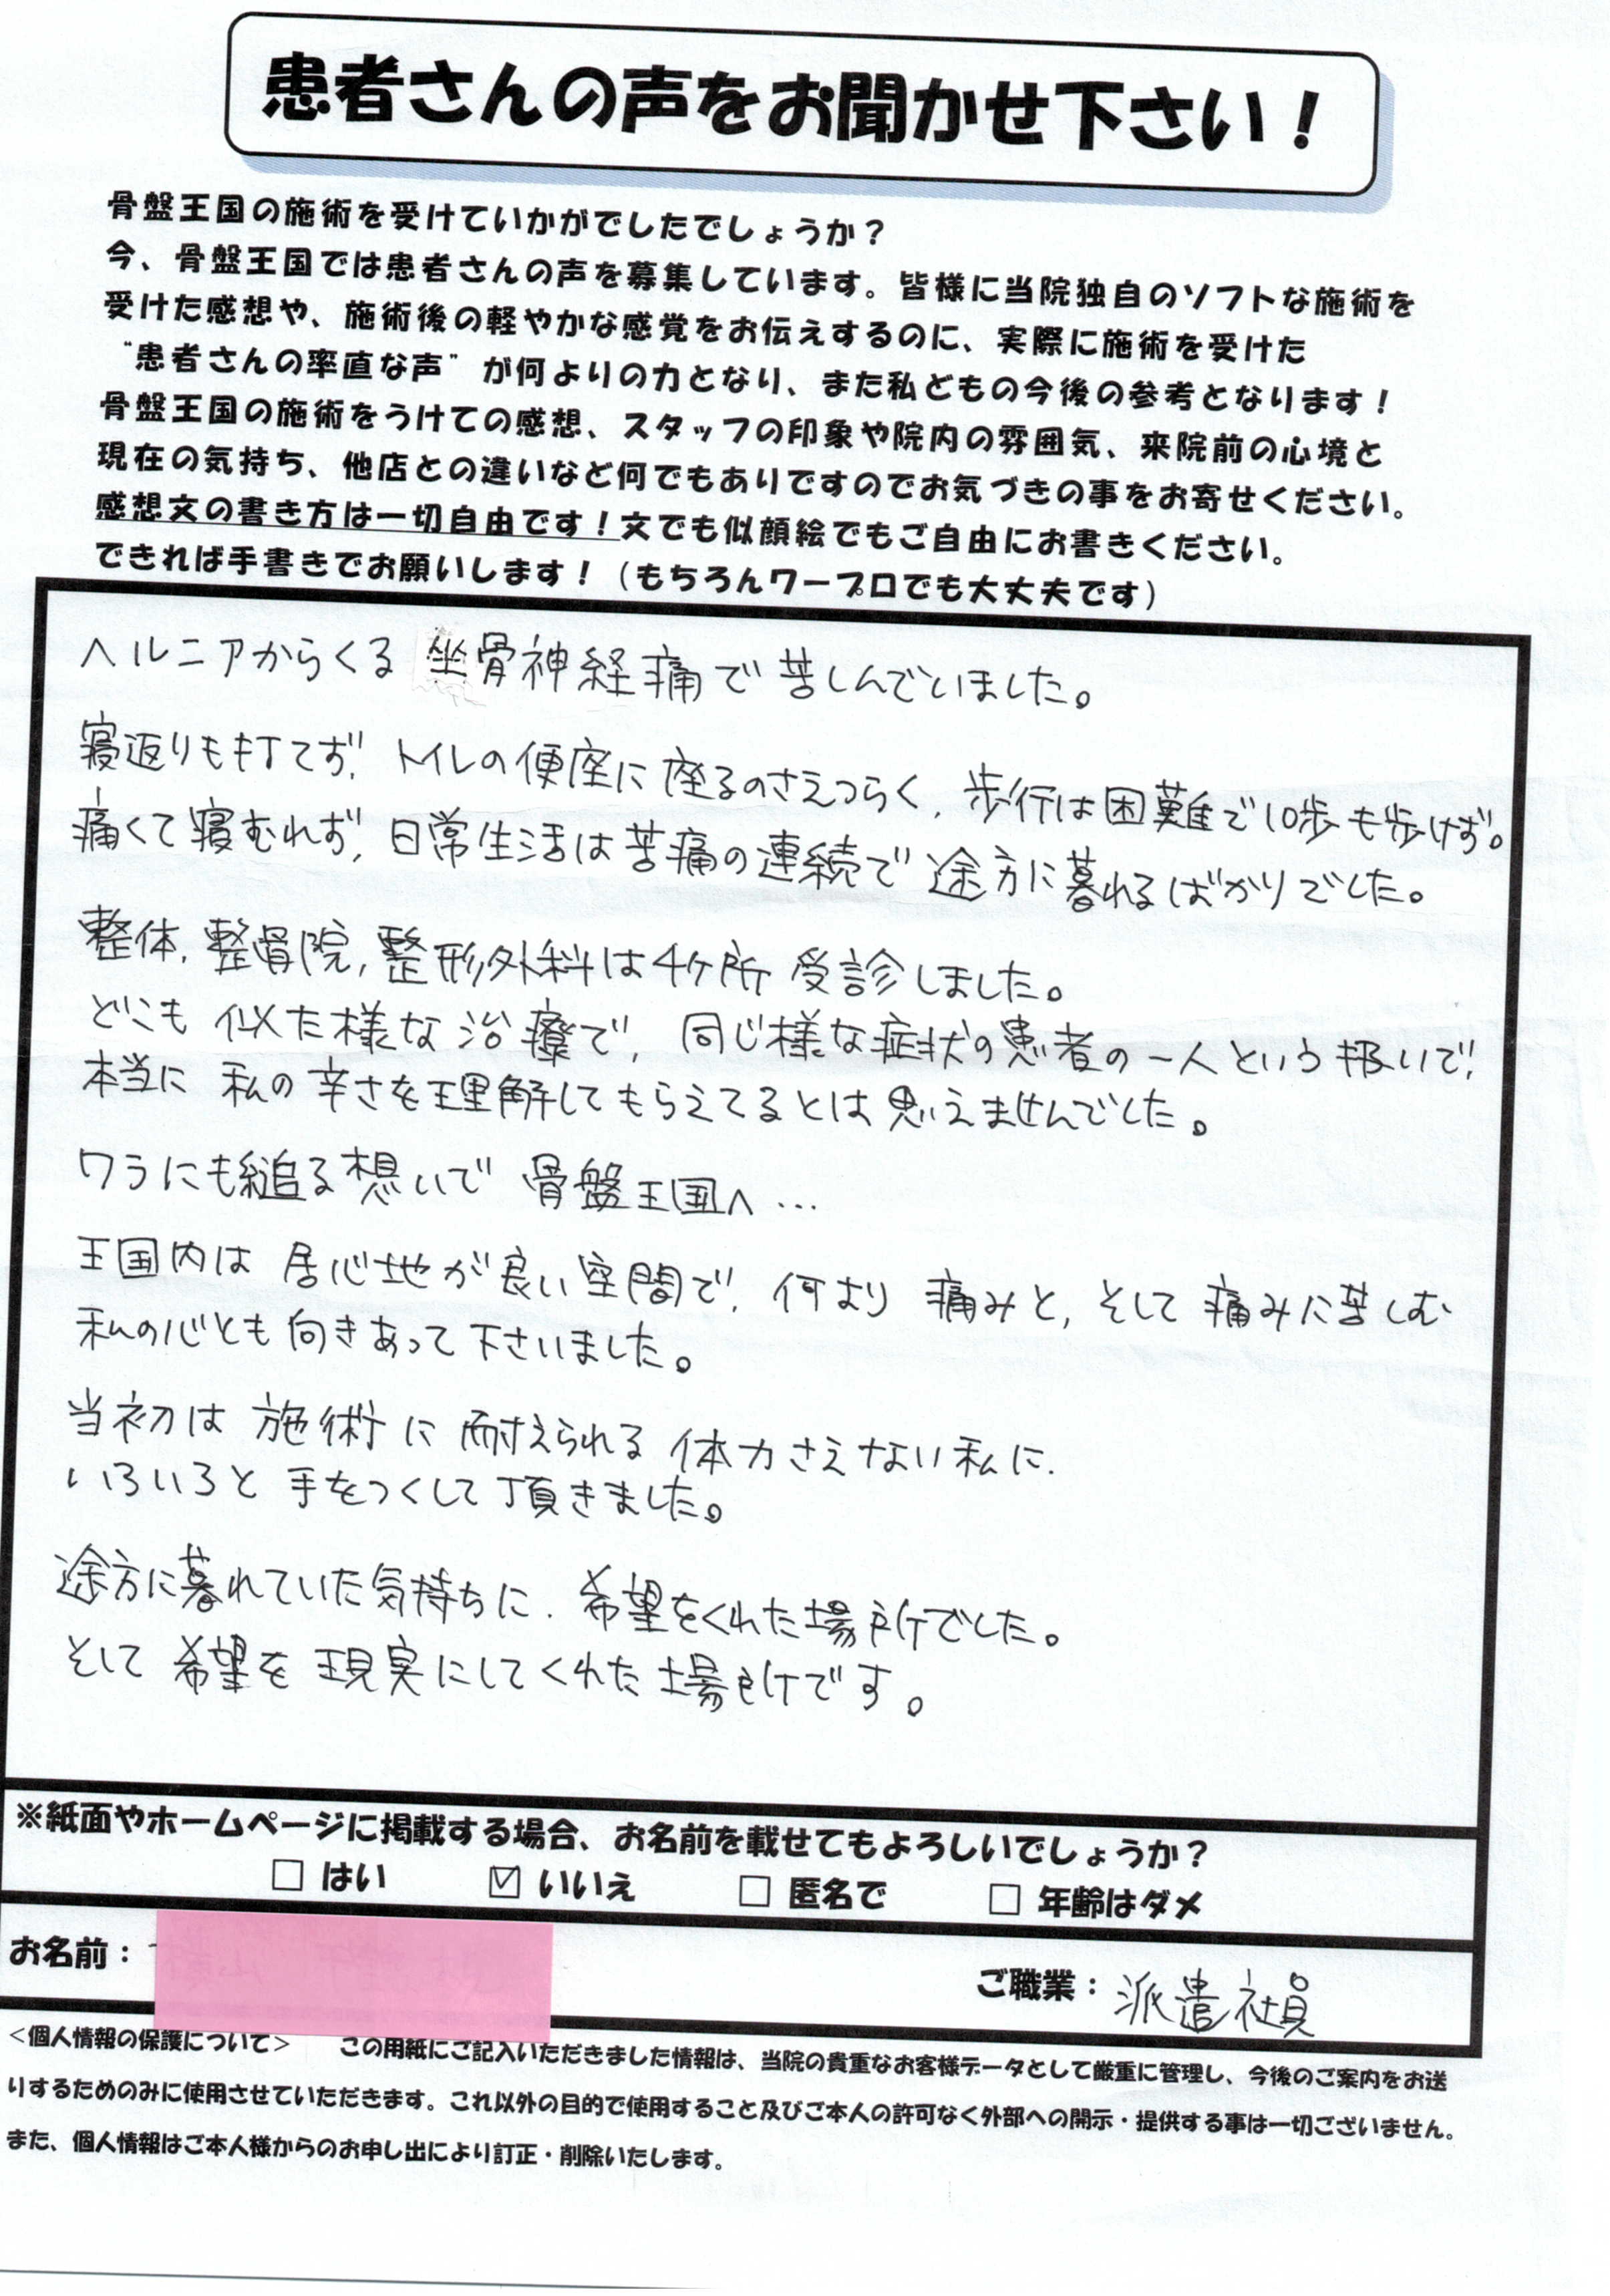 患者さんの声をお聞かせ下さい！
骨盤王国の施術を受けていかがでしたでしょうか？
今、骨盤王国では患者さんの声を募集しています。皆様に当院独自のソフトな施術を
受けた感想や、施術後の軽やかな感覚をお伝えするのに、実際に施術を受けた
“患者さんの率直な声”が何よりの力となり、また私どもの今後の参考となります！
骨盤王国の施術をうけての感想、スタッフの印象や院内の雰囲気、来院前の心境と
現在の気持ち、他店との違いなど何でもありですのでお気づきの事をお寄せください。
感想文の書き方は一切自由です！文でも似顔絵でもご自由にお書きください。
できれば手書きでお願いします！（もちろんワープロでも大丈夫です）
ヘルニアからくる坐骨神経痛で苦しんでいました。
寝返りも打てず、トイレの便座に座るのさえつらく、歩行は困難で10歩も歩けず。
痛くて寝むれず、日常生活は苦痛の連続で途方に暮れるばかりでした。
整体、整骨院、整形外科は4ケ所受診しました。
どこも似た様な治療で、同じ様な症状の患者の一人という扱いで、
本当に私の辛さを理解してもらえてるとは思えませんでした。
ワラにも縋る想いで骨盤王国へ…
王国内は居心地が良い空間で、何より痛みと、そして痛みに苦しむ
私の心とも向きあって下さいました。
当初は施術に耐えられる体力さえない私に、
いろいろと手をつくして頂きました。
途方に暮れていた気持ちに、希望をくれた場所でした。
そして希望を現実にしてくれた場所です。
※紙面やホームページに掲載する場合、お名前を載せてもよろしいでしょうか？
□ はい ☑ いいえ □ 匿名で □ 年齢はダメ
お名前： ご職業：派遣社員
＜個人情報の保護について＞ この用紙にご記入いただきました情報は、当院の貴重なお客様データとして厳重に管理し、今後のご案内をお送
りするためのみに使用させていただきます。これ以外の目的で使用すること及びご本人の許可なく外部への開示・提供する事は一切ございません。
また、個人情報はご本人様からのお申し出により訂正・削除いたします。